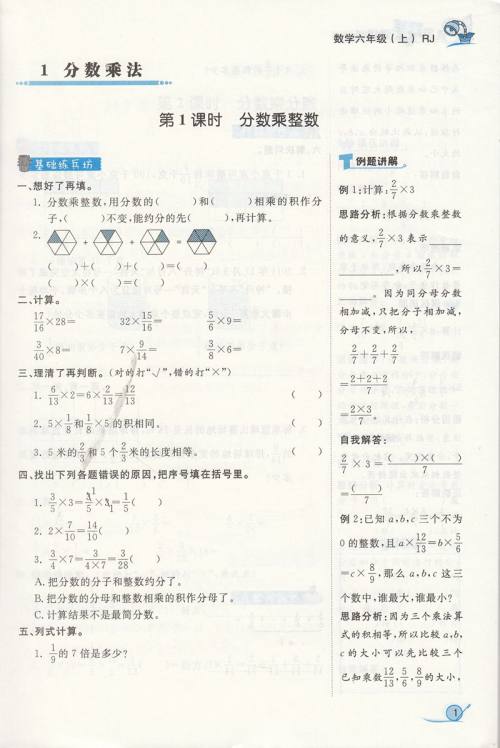 数学六年级(上) RJ
1 分数乘法
第1课时 分数乘整数
基础练兵坊
一、想好了再填。
1. 分数乘整数,用分数的( )和( )相乘的积作分
子,( )不变,能约分的先( ),再计算。
2. + + =
( )+( )+( )=( )
( )×( )=( )
二、计算。
17/16×28= 32×15/16= 5/6×9=
3/40×8= 7×9/14= 3/8×6=
三、理清了再判断。(对的打“√”,错的打“×”)
1. 6/13×2=6×2/13=12/13 ( )
2. 5×1/8和1/8×5的积相同。 ( )
3. 5米的2/3和5个2/3米的长度相等。 ( )
四、找出下列各题错误的原因,把序号填在括号里。
1. 3/5×3=3/5×3=1/5( )
2. 2×7/10=14/10( )
3. 3/4×7=3/4×7=3/28( )
A. 把分数的分子和整数约分了。
B. 把分数的分母和整数相乘的积作分母了。
C. 计算结果不是最简分数。
五、列式计算。
1. 1/9的7倍是多少?
例题讲解
例1:计算:2/7×3
思路分析:根据分数乘整数
的意义,2/7×3表示
,所以2/7×3=
。因为同分母分数
相加减,只把分子相加减,
分母不变,所以,
2/7+2/7+2/7
=2+2+2/7
=2×3/7.
自我解答:
2/7×3=( )×( )/7
=( )/7
例2:已知a,b,c三个不为
0的整数,且a×12/13=b×5/6
=c×8/9,那么a,b,c这三
个数中,谁最大,谁最小?
思路分析:因为三个乘法算
式的积相等,所以比较a,b,
c的大小可以先比较三个
已知乘数12/13,5/6,8/9的大小,
1